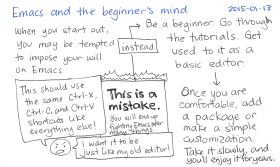 Emacs and the beginner's mind
2015-01-13
When you start out,
you may be tempted
to impose your will
on Emacs
instead
Be a beginner. Go through
the tutorials. Get
used to it as a
basic editor.
This should use
the same Ctrl-X,
Ctrl-C, and Ctrl-V
shortcuts like
everything else!
This is a
mistake.
You will end up
fighting Emacs over
many things.
I want it to be
just like my old editor!
Once you are
comfortable, add
a package or
make a simple
customization.
Take it slowly, and
you'll enjoy it for years